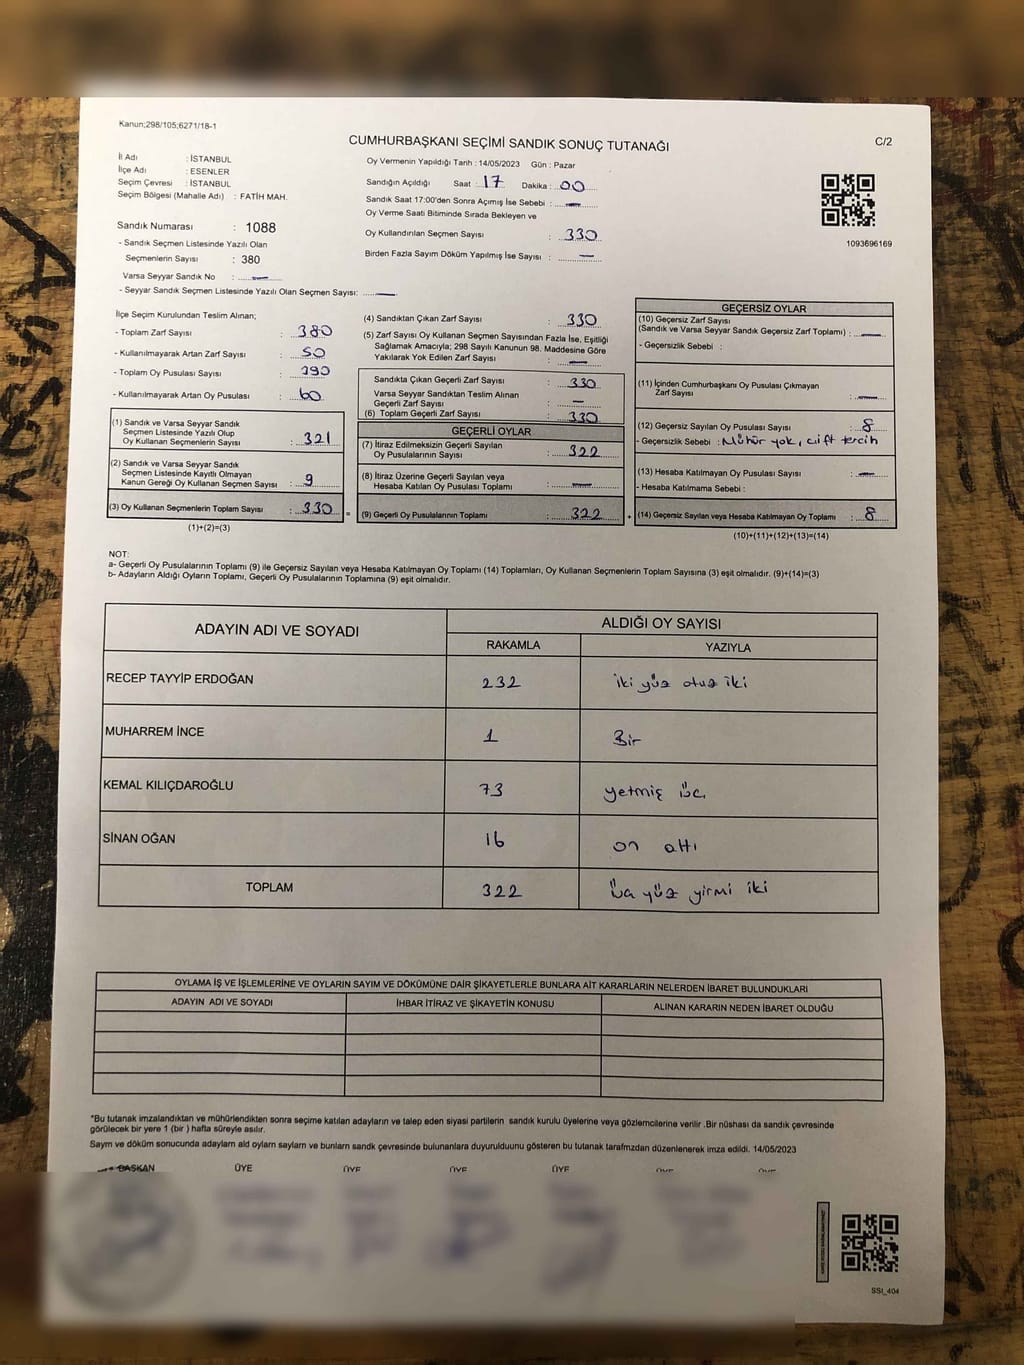 Kanun;298/105;6271/18-1
CUMHURBAŞKANI SEÇİMİ SANDIK SONUÇ TUTANAĞI
C/2
İl Adı : İSTANBUL
İlçe Adı : ESENLER
Seçim Çevresi : İSTANBUL
Seçim Bölgesi (Mahalle Adı) : FATİH MAH.
Sandık Numarası : 1088
- Sandık Seçmen Listesinde Yazılı Olan
Seçmenlerin Sayısı : 380
Varsa Seyyar Sandık No : —
- Seyyar Sandık Seçmen Listesinde Yazılı Olan Seçmen Sayısı: —
Oy Vermenin Yapıldığı Tarih : 14/05/2023 Gün : Pazar
Sandığın Açıldığı Saat : 17 Dakika : 00
Sandık Saat 17:00'den Sonra Açımış İse Sebebi : —
Oy Verme Saati Bitiminde Sırada Bekleyen ve
Oy Kullandırılan Seçmen Sayısı : 330
Birden Fazla Sayım Döküm Yapılmış İse Sayısı : —
1093696169
İlçe Seçim Kurulundan Teslim Alınan;
- Toplam Zarf Sayısı : 380
- Kullanılmayarak Artan Zarf Sayısı : 50
- Toplam Oy Pusulası Sayısı : 390
- Kullanılmayarak Artan Oy Pusulası : 60
(1) Sandık ve Varsa Seyyar Sandık
Seçmen Listesinde Yazılı Olup
Oy Kullanan Seçmenlerin Sayısı : 321
(2) Sandık ve Varsa Seyyar Sandık
Seçmen Listesinde Kayıtlı Olmayan
Kanun Gereği Oy Kullanan Seçmen Sayısı : 9
(3) Oy Kullanan Seçmenlerin Toplam Sayısı : 330
(1)+(2)=(3)
(4) Sandıktan Çıkan Zarf Sayısı : 330
(5) Zarf Sayısı Oy Kullanan Seçmen Sayısından Fazla İse, Eşitliği
Sağlamak Amacıyla; 298 Sayılı Kanunun 98. Maddesine Göre
Yakılarak Yok Edilen Zarf Sayısı : —
Sandıkta Çıkan Geçerli Zarf Sayısı : 330
Varsa Seyyar Sandıktan Teslim Alınan
Geçerli Zarf Sayısı : —
(6) Toplam Geçerli Zarf Sayısı : 330
GEÇERLİ OYLAR
(7) İtiraz Edilmeksizin Geçerli Sayılan
Oy Pusulalarının Sayısı : 322
(8) İtiraz Üzerine Geçerli Sayılan veya
Hesaba Katılan Oy Pusulası Toplamı : —
= (9) Geçerli Oy Pusulalarının Toplamı : 322
GEÇERSİZ OYLAR
(10) Geçersiz Zarf Sayısı
(Sandık ve Varsa Seyyar Sandık Geçersiz Zarf Toplamı) : —
- Geçersizlik Sebebi :
(11) İçinden Cumhurbaşkanı Oy Pusulası Çıkmayan
Zarf Sayısı : —
(12) Geçersiz Sayılan Oy Pusulası Sayısı : 8
- Geçersizlik Sebebi : Mühür yok, çift tercih
(13) Hesaba Katılmayan Oy Pusulası Sayısı : —
- Hesaba Katılmama Sebebi :
+ (14) Geçersiz Sayılan veya Hesaba Katılmayan Oy Toplamı : 8
(10)+(11)+(12)+(13)=(14)
NOT:
a- Geçerli Oy Pusulalarının Toplamı (9) ile Geçersiz Sayılan veya Hesaba Katılmayan Oy Toplamı (14) Toplamları, Oy Kullanan Seçmenlerin Toplam Sayısına (3) eşit olmalıdır. (9)+(14)=(3)
b- Adayların Aldığı Oyların Toplamı, Geçerli Oy Pusulalarının Toplamına (9) eşit olmalıdır.
ADAYIN ADI VE SOYADI ALDIĞI OY SAYISI
RAKAMLA YAZIYLA
RECEP TAYYİP ERDOĞAN 232 iki yüz otuz iki
MUHARREM İNCE 1 Bir
KEMAL KILIÇDAROĞLU 73 yetmiş üç
SİNAN OĞAN 16 on altı
TOPLAM 322 üç yüz yirmi iki
OYLAMA İŞ VE İŞLEMLERİNE VE OYLARIN SAYIM VE DÖKÜMÜNE DAİR ŞİKAYETLERLE BUNLARA AİT KARARLARIN NELERDEN İBARET BULUNDUKLARI
ADAYIN ADI VE SOYADI İHBAR İTİRAZ VE ŞİKAYETİN KONUSU ALINAN KARARIN NEDEN İBARET OLDUĞU
*Bu tutanak imzalandıktan ve mühürlendikten sonra seçime katılan adayların ve talep eden siyasi partilerin sandık kurulu üyelerine veya gözlemcilerine verilir .Bir nüshası da sandık çevresinde
görülecek bir yere 1 (bir ) hafta süreyle asılır.
Sayım ve döküm sonucunda adaylarn ald oylarn saylarn ve bunlarn sandk çevresinde bulunanlara duyurulduunu gösteren bu tutanak tarafmzdan düzenlenerek imza edildi. 14/05/2023
BAŞKAN ÜYE ÜYE ÜYE ÜYE ÜYE ÜYE
SSI_404